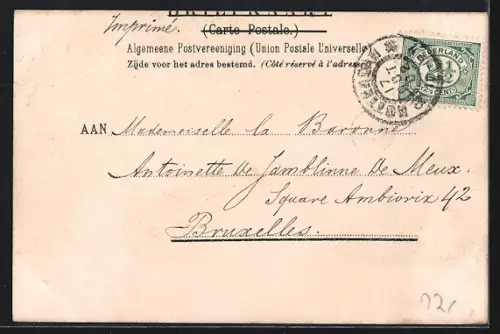 BRIEFKAART
Imprimé. (Carte Postale.)
Algemeene Postvereeniging (Union Postale Universelle)
Zijde voor het adres bestemd. (Côté réservé à l'adresse)
NEDERLAND
CENT
AAN Mademoiselle la Baronne
Antoinette de Jamblinne de Meux.
Square Ambiorix 42
Bruxelles.